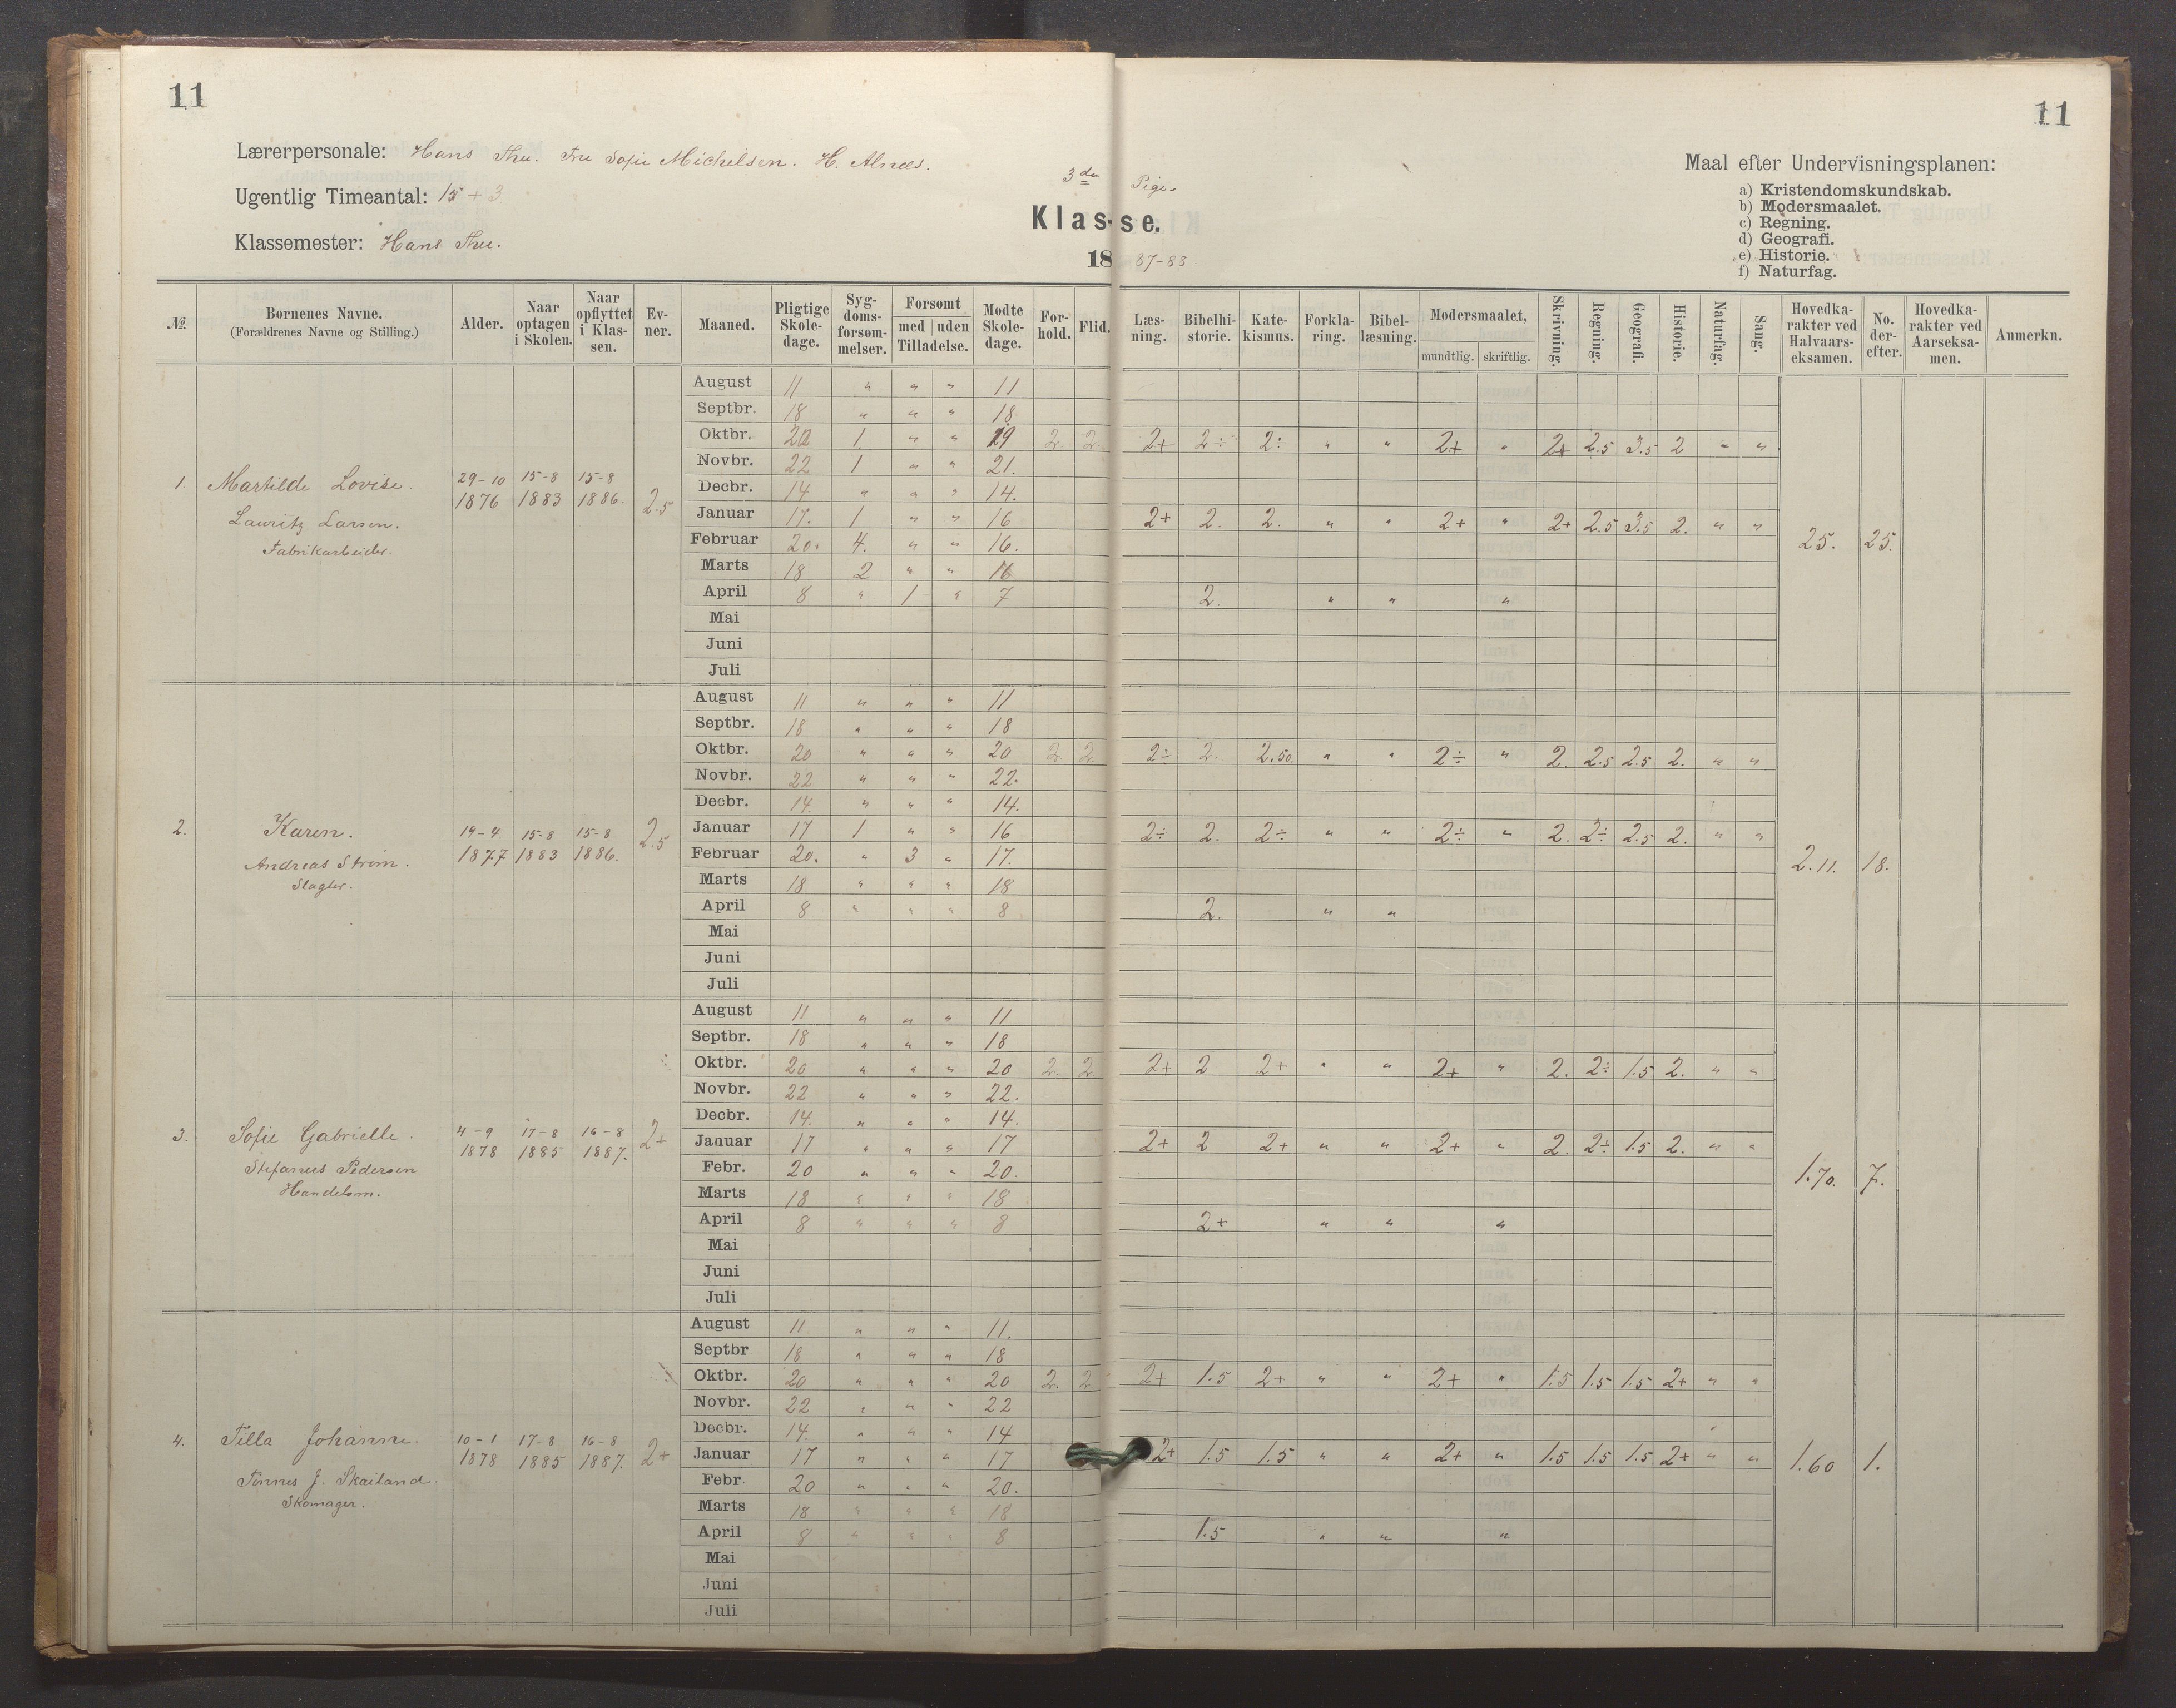 11
11
Lærerpersonale: Hans Thu. Fru Sofie Michelsen. H. Alnæs.
Ugentlig Timeantal: 15 + 3
Klassemester: Hans Thu.
3die Pige-
Klasse.
1887-88.
Maal efter Undervisningsplanen:
a) Kristendomskundskab.
b) Modersmaalet.
c) Regning.
d) Geografi.
e) Historie.
f) Naturfag.
№ Børnenes Navne. (Forældrenes Navne og Stilling.) Alder. Naar optagen i Skolen. Naar opflyttet i Klassen. Evner. Maaned. Pligtige Skoledage. Sygdomsforsømmelser. Forsømt med uden Tilladelse. Mødte Skoledage. Forhold. Flid. Læsning. Bibelhistorie. Katekismus. Forklaring. Bibellæsning. Modersmaalet, mundtlig. skriftlig. Skrivning. Regning. Geografi. Historie. Naturfag. Sang. Hovedkarakter ved Halvaarseksamen. No. derefter. Hovedkarakter ved Aarseksamen. Anmerkn.
1. Martilde Lovise. 29-10 1876 15-8 1883 15-8 1886. 2.5
Lauritz Larsen.
Fabrikarbeider.
August 11 " " " 11
Septbr. 18 " " " 18
Oktbr. 20 1 " " 19 2. 2. 2+ 2÷ 2÷ " " 2+ " 2+ 2.5 3.5 2 " "
Novbr. 22 1 " " 21.
Decbr. 14 " " " 14.
Januar 17. 1 " " 16 2+ 2. 2. " " 2+ " 2+ 2.5 3.5 2. " "
Februar 20. 4. " " 16. 25. 25.
Marts 18 2 " " 16
April 8 " 1 " 7 2. " " "
Mai
Juni
Juli
2. Karen. 14-4. 1877 15-8 1883 15-8 1886. 2.5
Andreas Strøm.
Slagter.
August 11 " " " 11
Septbr. 18 " " " 18
Oktbr. 20 " " " 20 2. 2 2÷ 2. 2.50. " " 2÷ " 2. 2.5 2.5 2. " "
Novbr. 22 " " " 22.
Decbr. 14. " " " 14.
Januar 17 1 " " 16 2÷ 2. 2÷ " " 2÷ " 2. 2÷ 2.5 2. " "
Februar 20. " 3 " 17. 2.11. 18.
Marts 18 " " " 18
April 8 " " " 8 2. " "
Mai
Juni
Juli
3. Sofie Gabrielle. 4-9 1878 17-8 1885 16-8 1887. 2+
Stefanus Pedersen
Handelsm.
August 11 " " " 11
Septbr. 18 " " " 18
Oktbr. 20 " " " 20 2. 2 2+ 2 2+ " " 2+ " 2. 2÷ 1.5 2. " "
Novbr. 22 " " " 22.
Decbr. 14. " " " 14.
Januar 17 " " " 17 2+ 2 2+ " " 2+ " 2. 2÷ 1.5 2. " "
Febr. 20 " " " 20. 1.70. 7.
Marts 18 " " " 18
April 8 " " " 8 2+ " " "
Mai
Juni
Juli
4. Tilla Johanne. 10-1 1878 17-8 1885 16-8 1887. 2+
Tønnes J. Skailand.
Skomager.
August 11 " " " 11.
Septbr 18 " " " 18
Oktbr. 20 " " " 20 2. 2 2+ 1.5 2+ " " 2+ " 1.5 1.5 1.5 2+ " "
Novbr. 22 " " " 22
Decbr. 14. " " " 14
Januar 17 " " " 17 2+ 1.5 1.5 " " 2+ " 1.5 1.5 1.5 2+ " " 1.60 1.
Febr. 20 " " " 20.
Marts 18 " " " 18
April 8 " " " 8 1.5 " " "
Mai
Juni
Juli